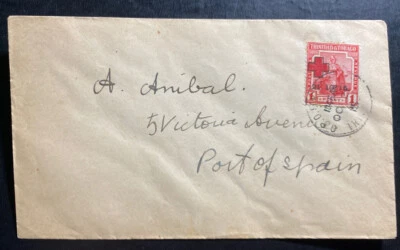 TRINIDAD & TOBAGO
1 1
A. Anibal.
5 Victoria Avenue
Port of Spain